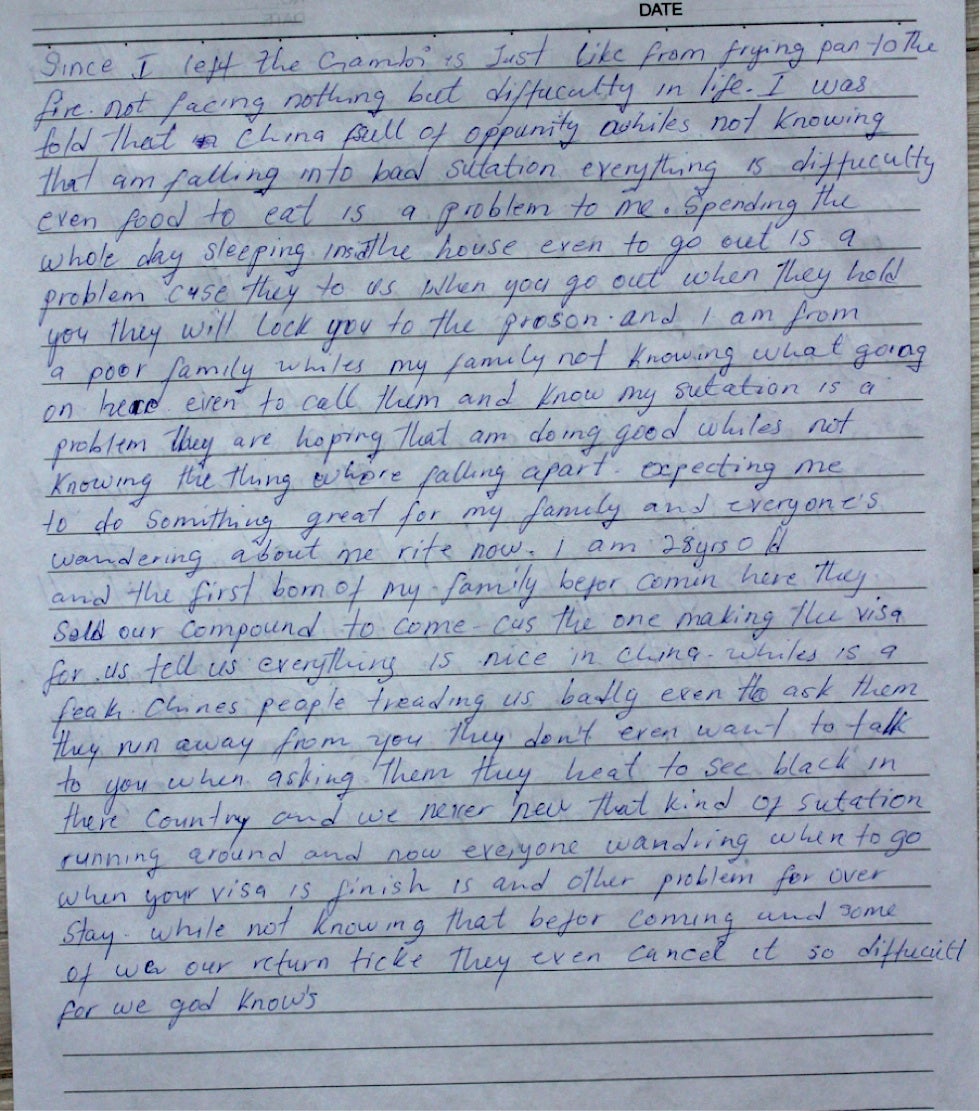 DATE
Since I left the Gambi is Just like from frying pan to the
fire. not facing nothing but diffuculty in life. I was
told that China full of oppunity whiles not knowing
that am falling into bad sutation everything is diffuculty
even food to eat is a problem to me. Spending the
whole day sleeping insithe house even to go out is a
problem cuse they to us when you go out when they hold
you they will lock you to the proson. and I am from
a poor family whiles my family not knowing what going
on here even to call them and know my sutation is a
problem they are hoping that am doing good whiles not
knowing the thing whore falling apart. expecting me
to do somithing great for my family and everyone's
wandering about me rite now. I am 28yrs old
and the first born of my family befor comin here they
Sold our compound to come - cus the one making the visa
for us tell us everything is nice in china. whiles is a
feak. Chines peaple treading us badly even to ask them
they run away from you they don't even want to talk
to you when asking them they heat to see black in
there Country and we never new that kind of sutation
running around and now everyone wandring when to go
when your visa is finish is and other problem for over
stay. while not knowing that befor coming and some
of we our return ticke they even cancel it so diffucult
for we god know's